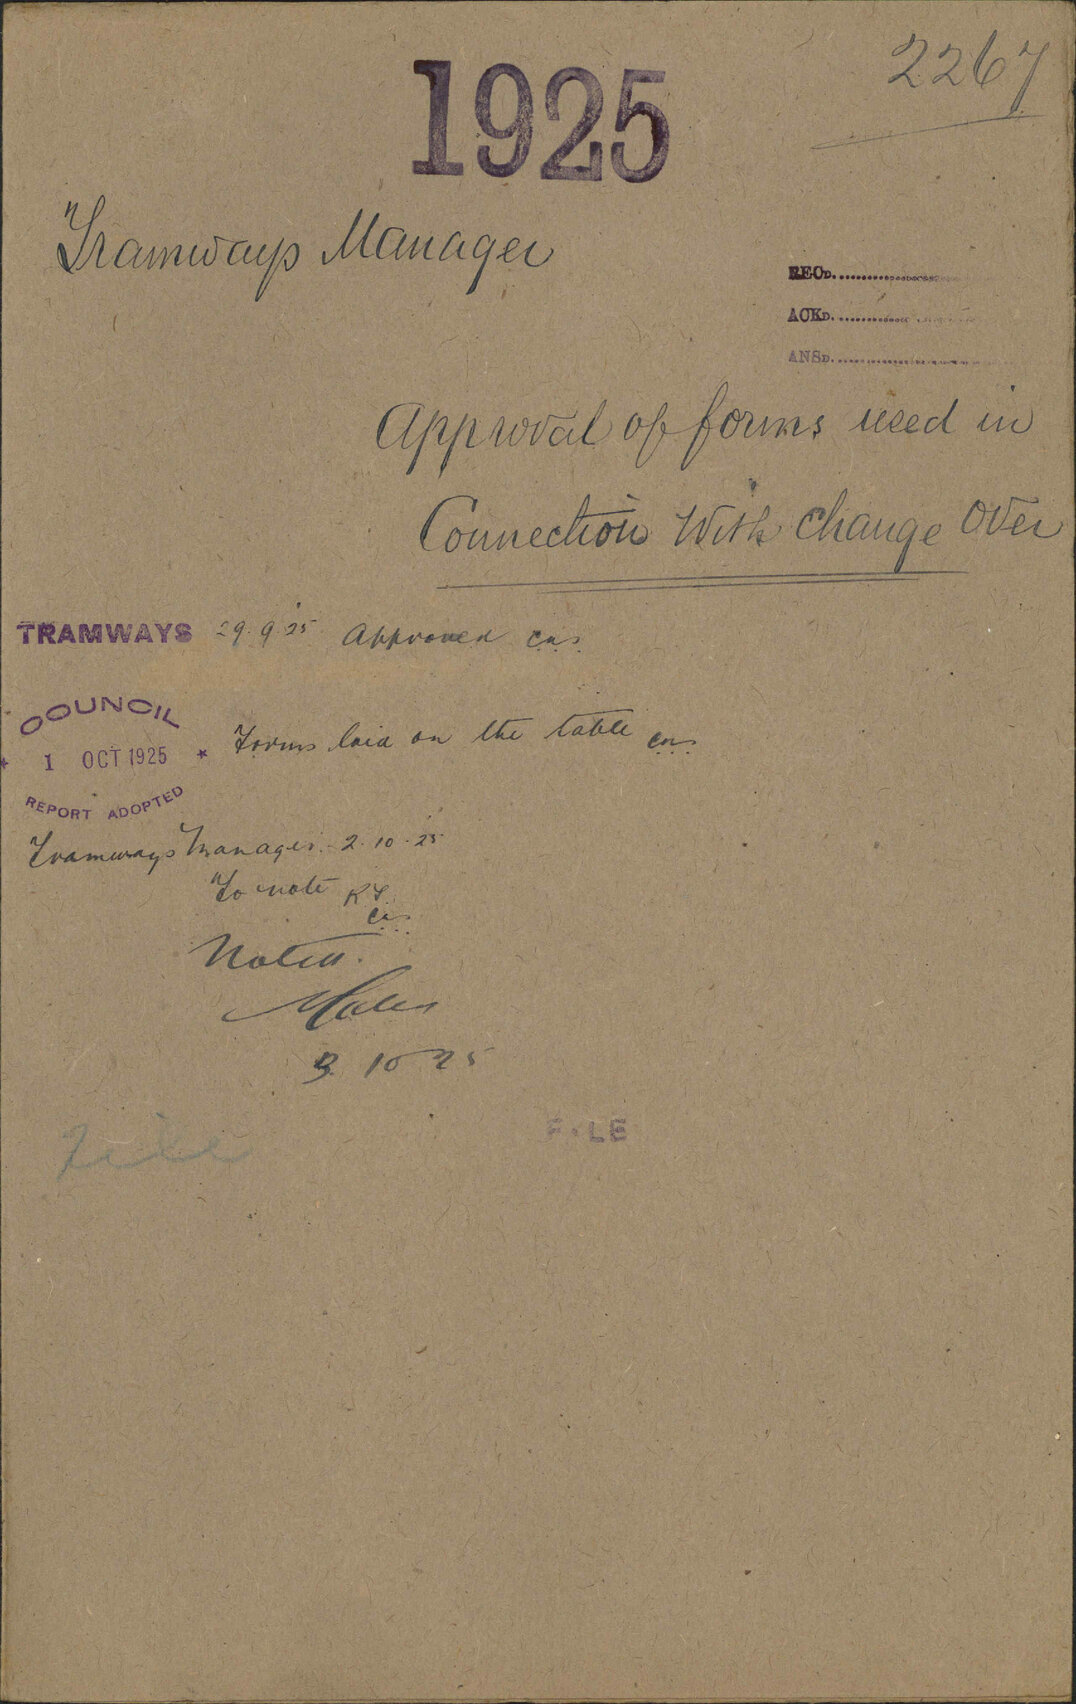 2267
1925
Tramways Manager
RECD.
ACKD.
ANSD.
Approval of forms used in
Connection With change Over
TRAMWAYS 29.9.25 Approved
COUNCIL
1 OCT 1925
REPORT ADOPTED
Forms laid on the table
Tramways Manager. 2.10.25
To note
Noted.
3.10.25
File
FILE